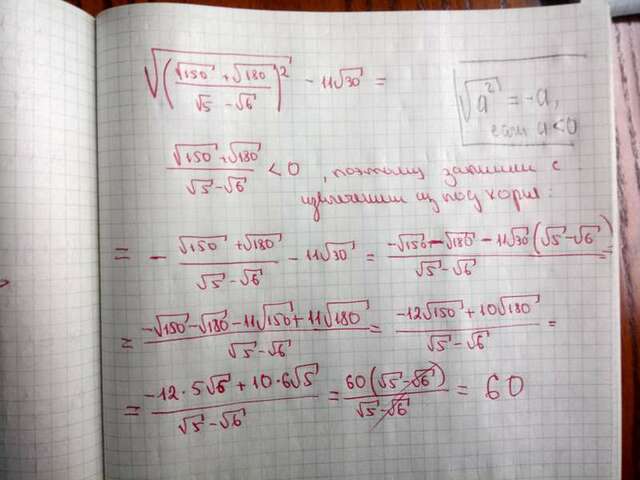 √((√150 + √180)/(√5 - √6))² - 11√30 =
√a² = -a,
если a<0
(√150 + √180)/(√5 - √6) < 0, поэтому запишем с
извлечением из под корня:
= - (√150 + √180)/(√5 - √6) - 11√30 = (-√150 - √180 - 11√30(√5 - √6))/(√5 - √6) =
= (-√150 - √180 - 11√150 + 11√180)/(√5 - √6) = (-12√150 + 10√180)/(√5 - √6) =
= (-12·5√6 + 10·6√5)/(√5 - √6) = 60(√5 - √6)/(√5 - √6) = 60